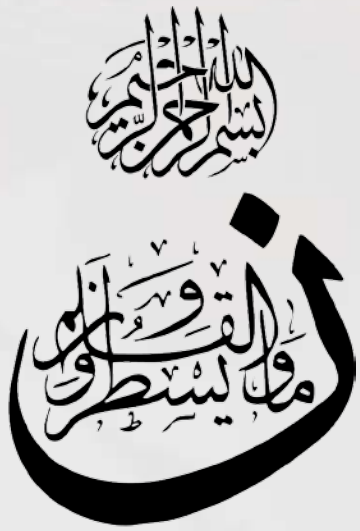 بسم الله الرحمن الرحيم
ن والقلم وما يسطرون